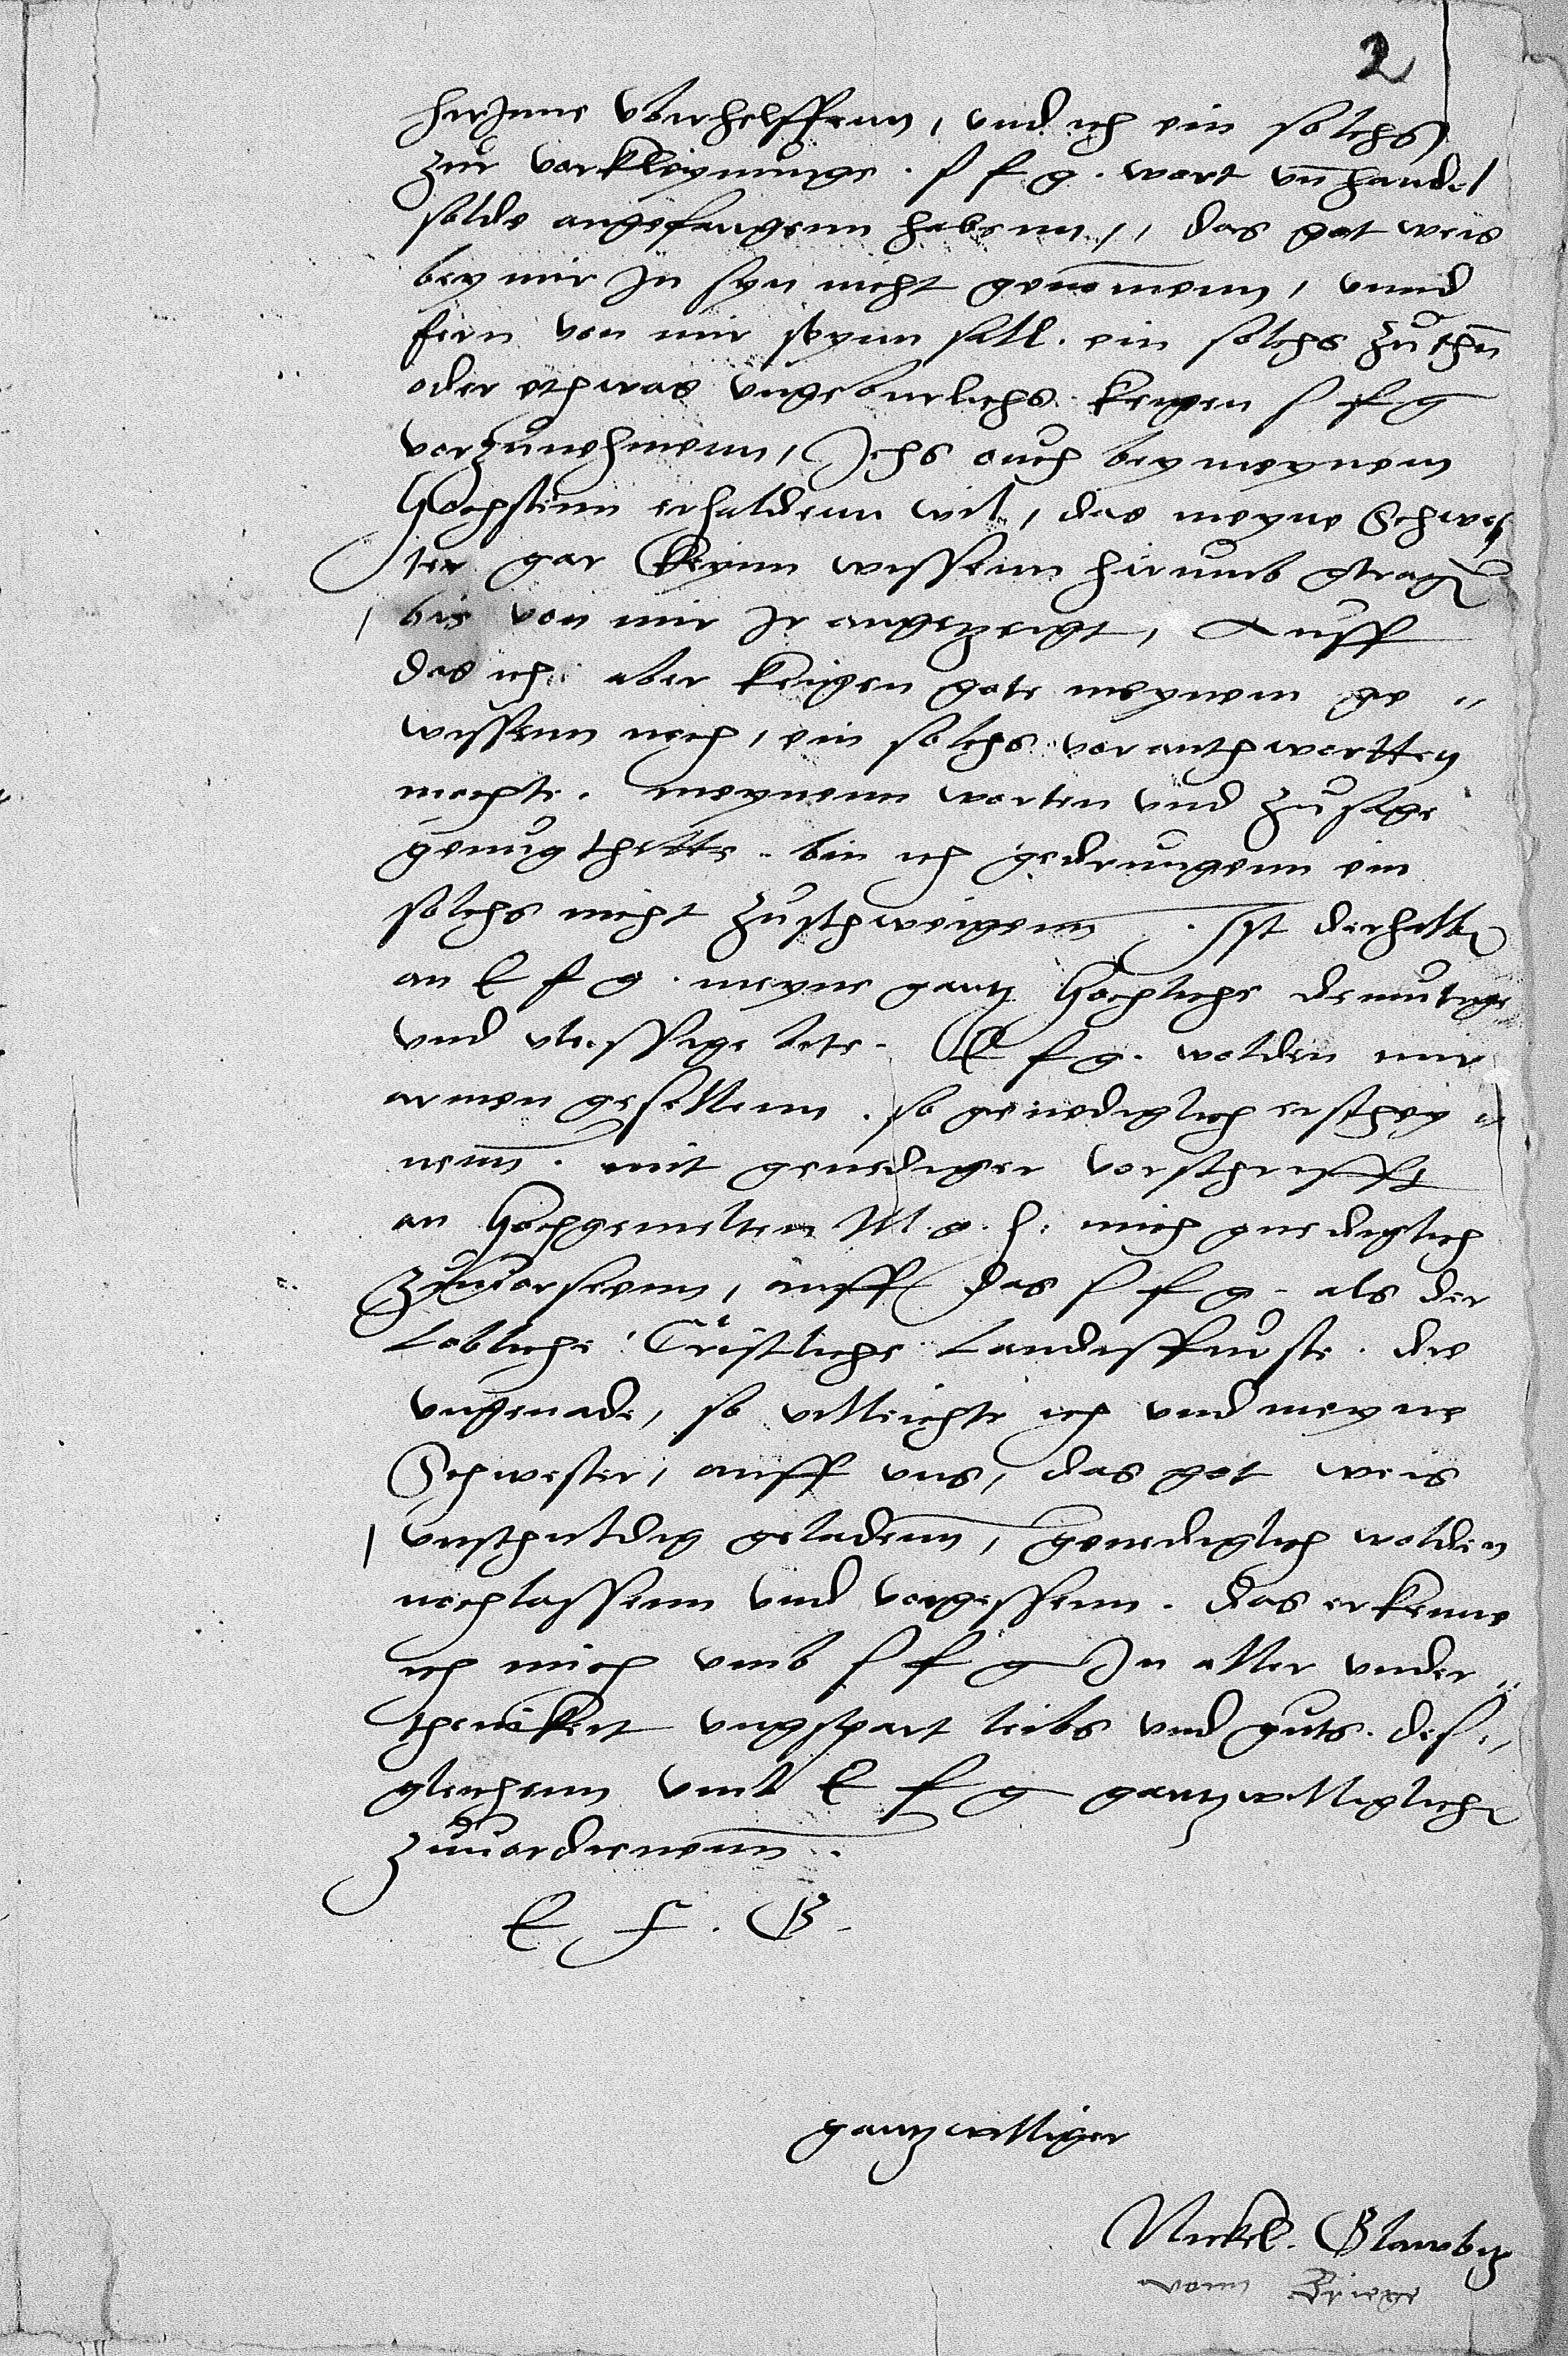 2
hirJnne vberhelffenn, vnd ich ein solchs
zur vorkleynunge. s f g. wort vn̄ handel
solde angefangenn habenn,, das got weis
bey mir Jn syn nicht genōmenn, vnnd
fern von mir seynn sall. ein solchs zuthūn
oder ethwas vngeburlichs kegen s f g
vorzunehmenn, Ichs auch bey meynem
Hochstenn erhaldenn wil, das meyne Schwes
ter gar keynn wissenn hirumb gtragen
bis von mir Jr angezeigt, Auff
das ich aber keigen gote meynem ge"
wissenn nach, ein solchs voranthwortten
mochte. meynenn worten vnd zusage
genug thette. bin ich gedrungenn ein
solchs nicht zuschweigenn. Ist derhalben
an E f g. meyne gantz Hochliche demutige
vnd vleissige bete. E f g. wolden mir
armen gesellenn. so genediglich erschey"
nenn. mit genediger vorschrifft
an Hochgemelten M. g. h: mich gnediglich
zuuorseenn, auff das s f g. als der
Lobliche Cristliche Landesffurste. die
vngenade, so villeichte ich vnd meyne
Schwester, auff vns, das got weis
vnschuldig geladenn, genediglich wolden
nochlassenn vnd vorgessenn. das erkenne
ich mich vmb s f g Jn aller vnder"
thenikeit vngspart leibs vnd guts. des"
gleichenn vmb E f g gantzwilliglich
zuuordienenn.
E F. G.
gantzwilliger
Nickel. Glawbitz
vonn Briege